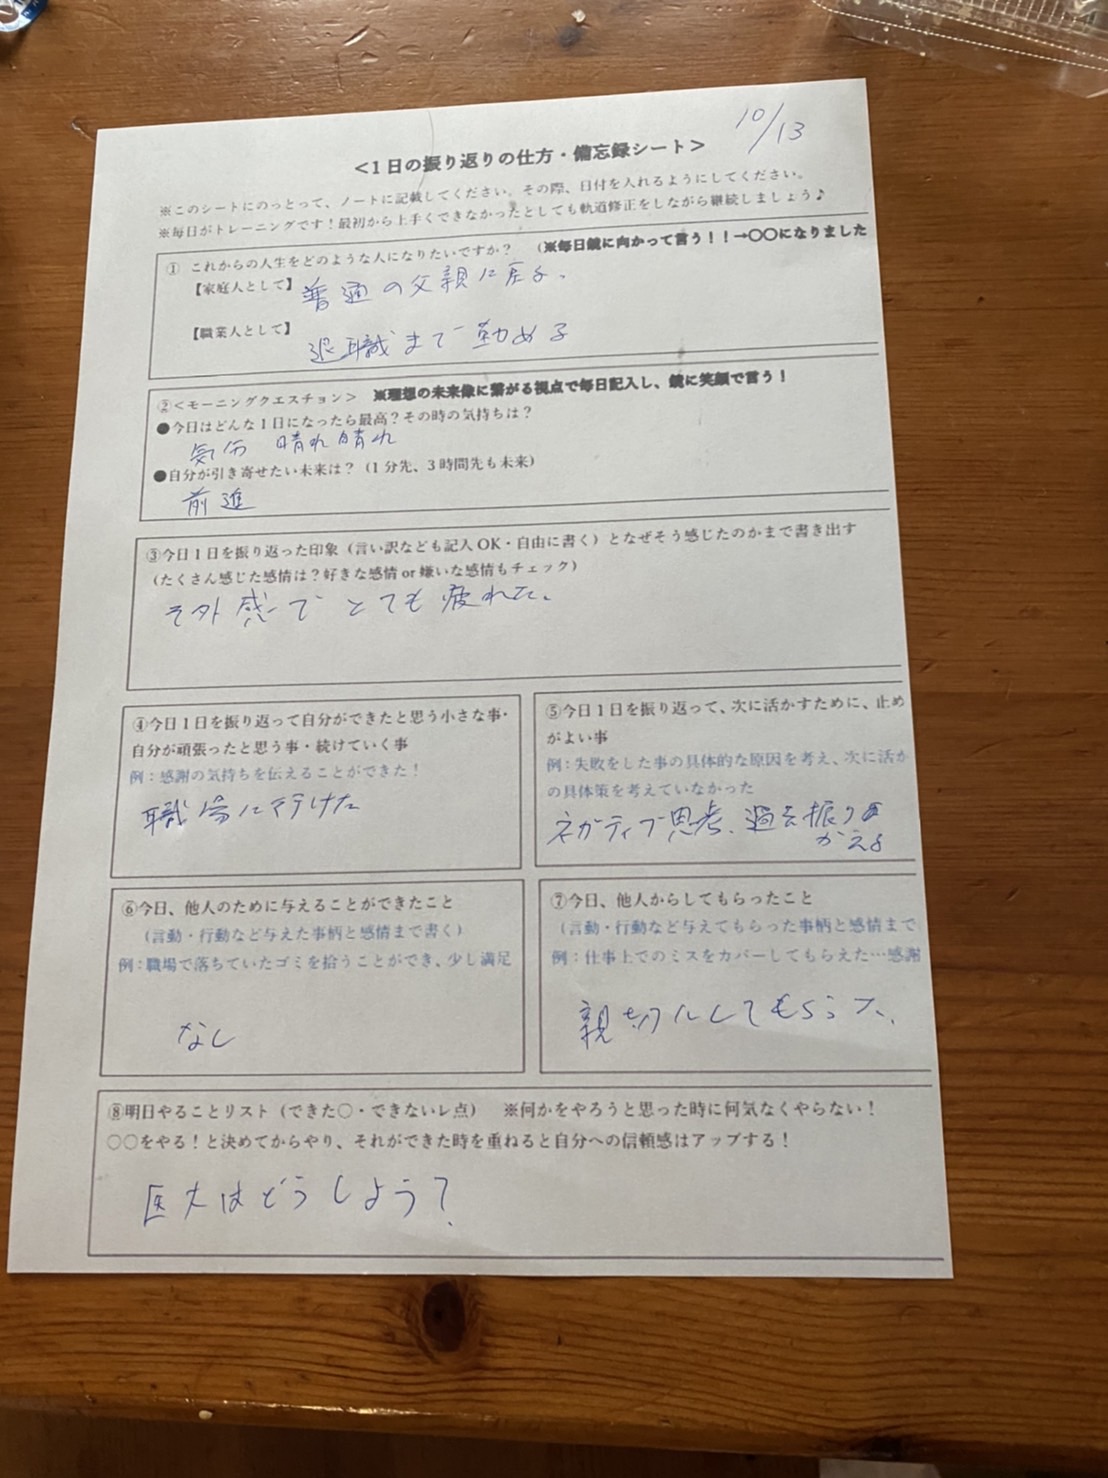 10/13
<1日の振り返りの仕方・備忘録シート>
※このシートにのっとって、ノートに記載してください。その際、日付を入れるようにしてください。
※毎日がトレーニングです！最初から上手くできなかったとしても軌道修正をしながら継続しましょう♪
① これからの人生をどのような人になりたいですか？ （※毎日鏡に向かって言う！！→〇〇になりました
【家庭人として】 普通の父親に戻る。
【職業人として】 退職まで勤める
②＜モーニングクエスチョン＞ ※理想の未来像に繋がる視点で毎日記入し、鏡に笑顔で言う！
●今日はどんな1日になったら最高？その時の気持ちは？
気分 晴れ晴れ
●自分が引き寄せたい未来は？（1分先、3時間先も未来）
前進
③今日1日を振り返った印象（言い訳なども記入OK・自由に書く）となぜそう感じたのかまで書き出す
（たくさん感じた感情は？好きな感情or嫌いな感情もチェック）
そ外感でとても疲れた。
④今日1日を振り返って自分ができたと思う小さな事・
自分が頑張ったと思う事・続けていく事
例：感謝の気持ちを伝えることができた！
職場に行けた
⑤今日1日を振り返って、次に活かすために、止め
がよい事
例：失敗をした事の具体的な原因を考え、次に活か
の具体策を考えていなかった
ネガティブ思考、過去振り
かえる
⑥今日、他人のために与えることができたこと
（言動・行動など与えた事柄と感情まで書く）
例：職場で落ちていたゴミを拾うことができ、少し満足
なし
⑦今日、他人からしてもらったこと
（言動・行動など与えてもらった事柄と感情まで
例：仕事上でのミスをカバーしてもらえた…感謝
親切にしてもらった、
⑧明日やることリスト（できた〇・できないレ点） ※何かをやろうと思った時に何気なくやらない！
〇〇をやる！と決めてからやり、それができた時を重ねると自分への信頼感はアップする！
医大はどうしよう？